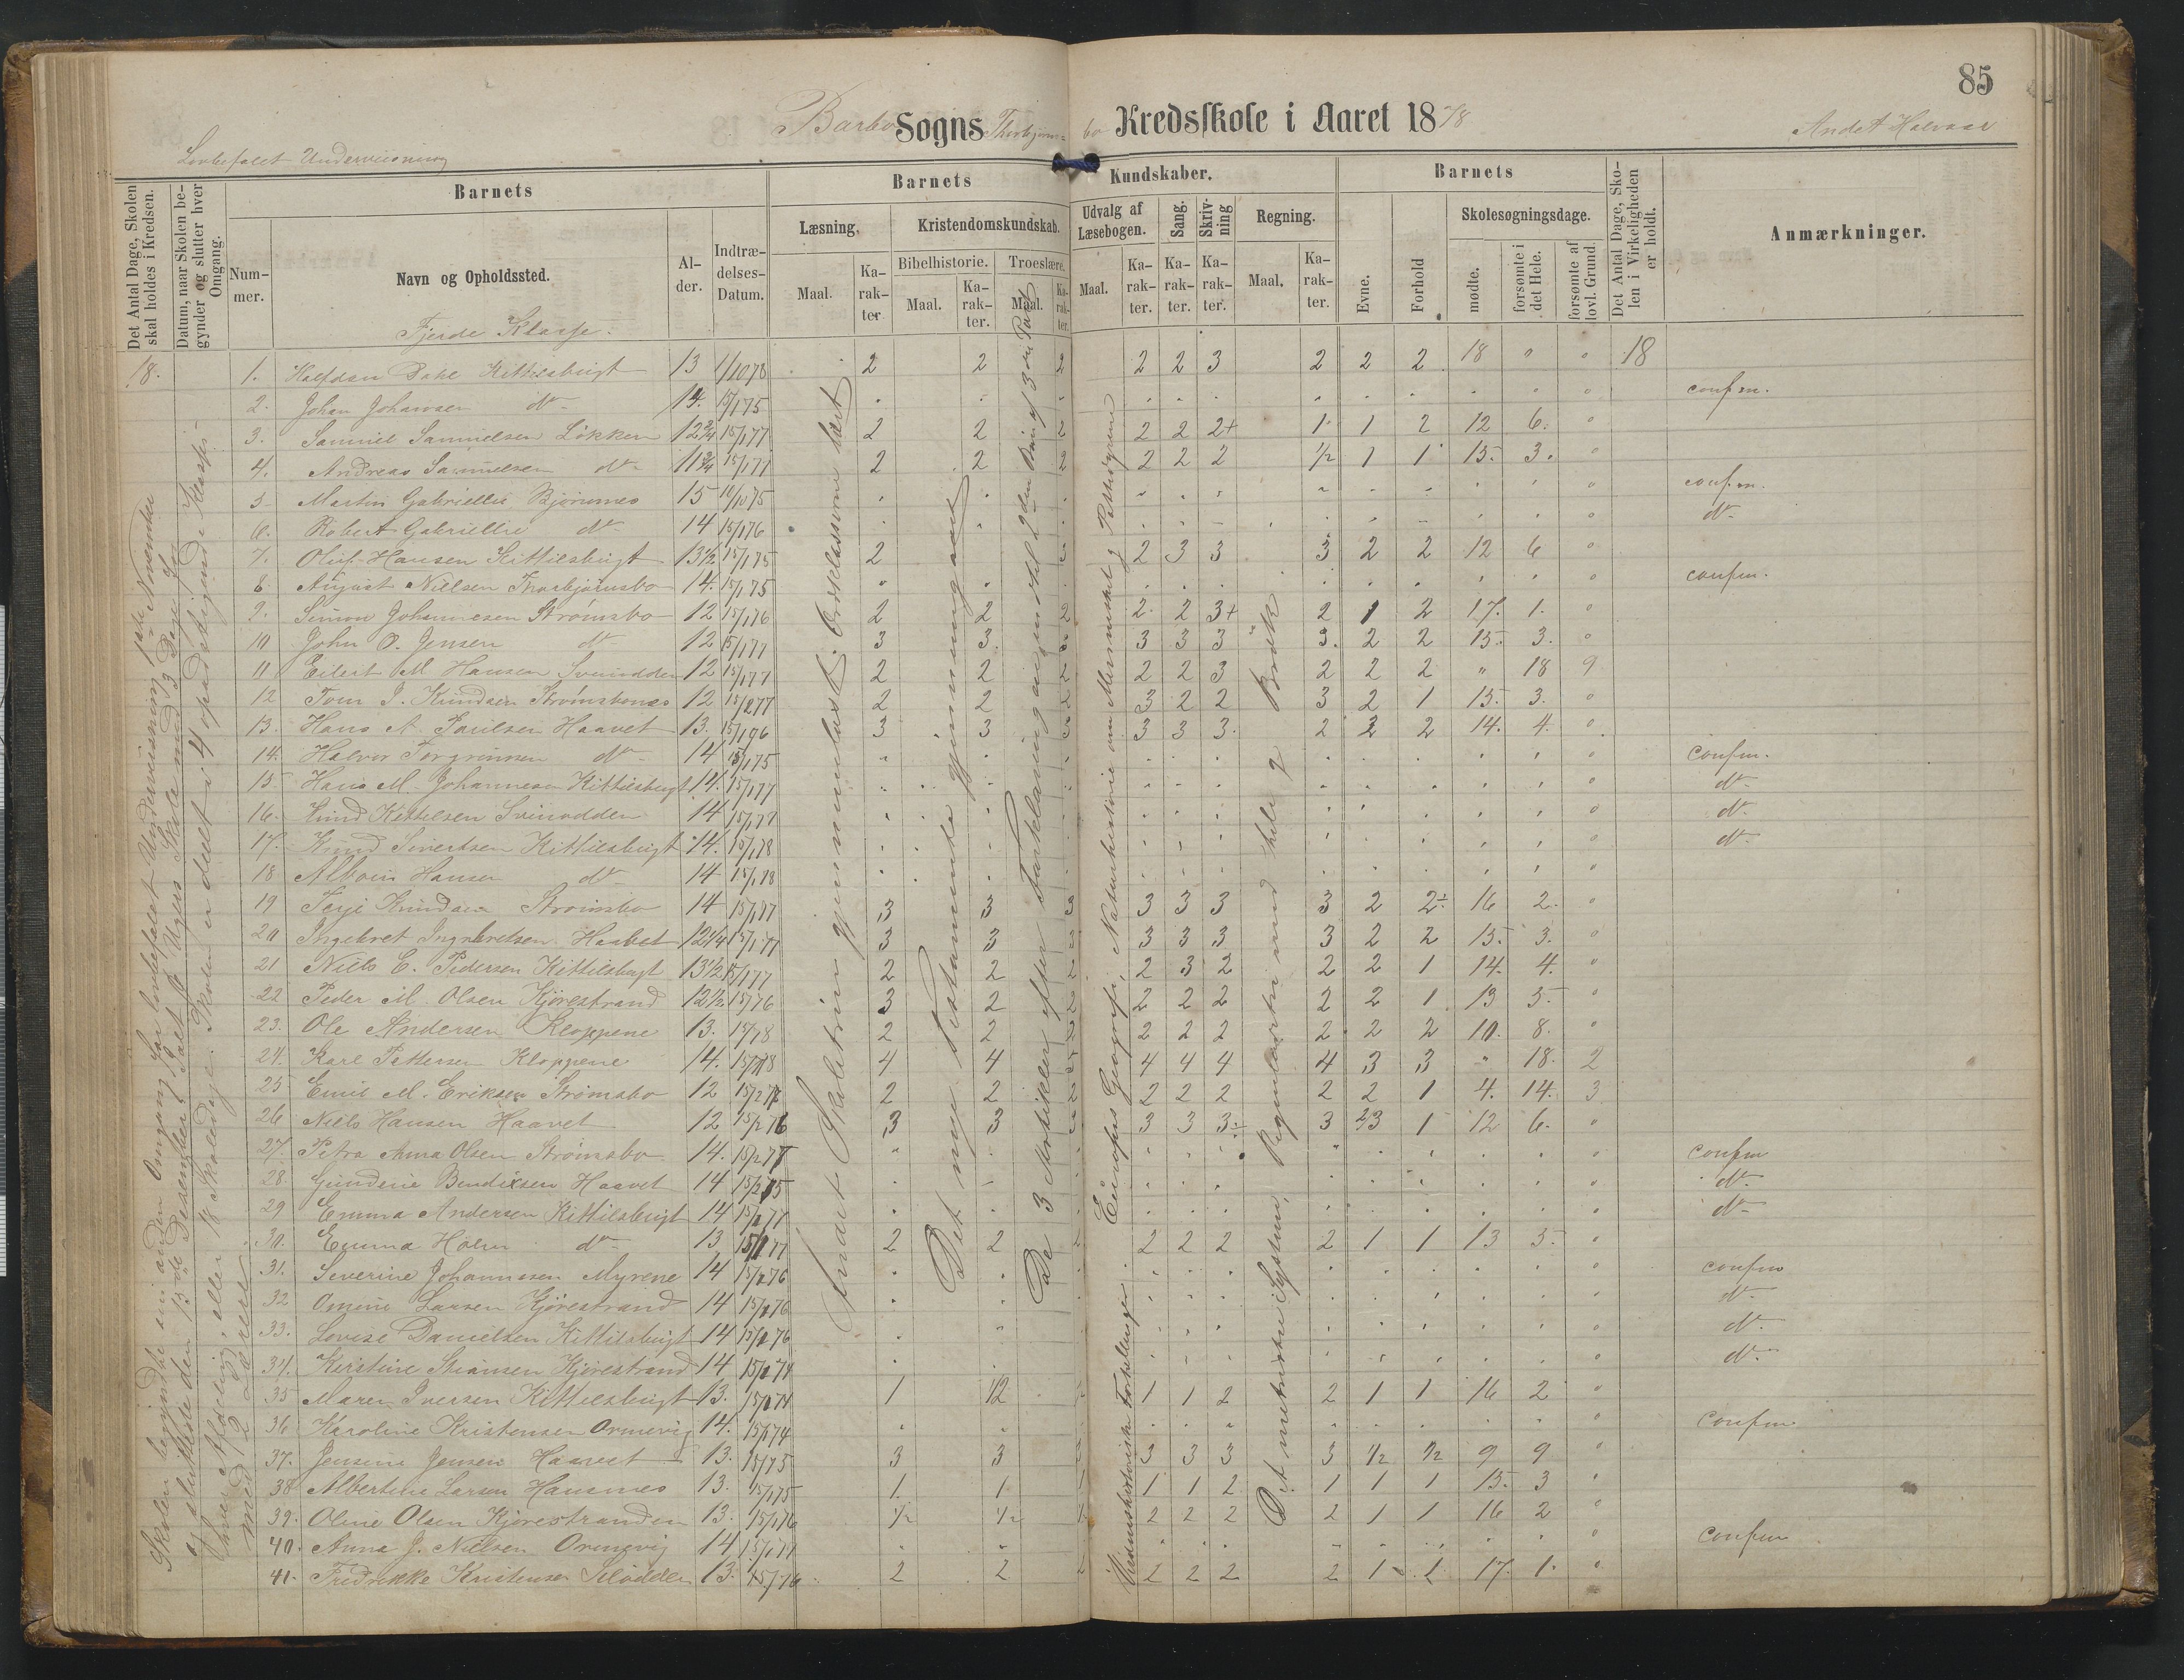 85
Barbo Sogns Thorbjørns- bo Kredsskole i Aaret 1878
Andet Halvaar
Lovbefalet Underviisning
Det Antal Dage, Skolen skal holdes i Kredsen.
Datum, naar Skolen begynder og slutter hver Omgang.
Barnets
Nummer.
Navn og Opholdssted.
Alder.
Indtrædelses-Datum.
Barnets Kundskaber.
Læsning.
Maal.
Karakter
Kristendomskundskab.
Bibelhistorie.
Maal.
Karakter.
Troeslære.
Maal.
Karakter.
Udvalg af Læsebogen.
Maal.
Karakter.
Sang.
Karakter.
Skrivning
Karakter.
Regning.
Maal.
Karakter.
Barnets
Evne.
Forhold
Skolesøgningsdage.
mødte.
forsømte i det Hele.
forsømte af lovl. Grund.
Det Antal Dage, Skolen i Virkeligheden er holdt.
Anmærkninger.
Fjerde Klasse.
18. 1. Halfdan Dahl Kittilsbugt 13 1/10 78 2 2 2 2 2 3 2 2 2 18 " " 18
2. Johan Johansen dto 14. 15/1 75 confm.
3. Samuel Samuelsen Løkken 12 3/4 15/1 77 2 2 2 2 2 2+ 1 1 2 12 6. "
4. Andreas Samuelsen dto 11 3/4 15/1 77 2 2 2 2 2 2 1/2 1 1 15. 3. "
5. Martin Gabrielsen Bjørnnes 15 10/10 75 confm.
6. Robert Gabrielsen dto 14 15/1 76 dto
7. Oluf Hansen Kittilsbugt 13 1/2 15/1 75 2 3 2 3 3 3 2 2 12 6 "
8. August Nielsen Thorbjørnsbo 14. 15/1 75 confm.
9. Simon Johannesen Strømsbo 12 15/1 76 2 2 2 2 2 3+ 2 1 2 17. 1. "
10 John O. Jensen dto 12 15/1 77 3 3. 3 3 3 3 3. 2 2 15. 3. "
11 Eilert M Hansen Svinodden 12 15/1 77 2 2 2 2 2 3 2 2 2 " 18 9
12 Tom J. Knudsen Strømsbones 12 15/2 77 2 2 2 3 2 2 3 2 1 15. 3. "
13. Hans A. Paulsen Haavet 13. 15/1 76 3 3 3 3 3 3. 2 2 2 14. 4. "
14. Halvor Torgrimsen dto 14 15/1 75 confm.
15 Hans M. Johannesen Kittilsbugt 14. 15/1 77 dto
16. Knud Kittelsen Svinodden 14 15/1 77 dto
17. Knud Sivertsen Kittilsbugt 14. 15/1 78 dto
18 Alboin Hansen dto 14 15/1 78
19 Terje Knudsen Strømsbo 14 15/1 77 3 3 3 3 3 3 3 2 2÷ 16 2. "
20 Ingebret Ingebretsen Haavet 12 1/4 15/1 77 3 3 3 3 3 3 3 2 2 15. 3. "
21 Niels C. Pedersen Kittilsbugt 13 1/2 15/1 77 2 2 2 2 3 2 2 2 1 14. 4. "
22 Peder M. Olsen Kjørestrand 12 1/2 15/1 76 3 2 2 2 2 2 2 2 1 13 5. "
23. Ole Andersen Kloppene 13. 15/1 78 2 2 2 2 2 2 2 2 2 10. 8. "
24. Karl Pettersen Kloppene 14. 15/1 78 4 4 4 4 4 4 4 3 3 " 18. 2
25 Emil M. Eriksen Strømsbo 12 15/2 77 2 2 2 2 2 2 2 2 1 4. 14. 3
26 Niels Hansen Haavet 12 15/2 76 3 3 3 3 3 3÷ 3 2/3 1 12 6. "
27. Petra Anna Olsen Strømsbo 14. 15/2 77 confm
28. Gundine Bendixsen Haavet 14 15/2 75 dto
29 Emma Andersen Kittilsbugt 14 15/1 77 dto
30. Emma Holm dto 13 15/1 77 2 2 2 2 2 2 2 1 1 13 5. "
31. Severine Johannesen Myrene 14 15/1 76 confm
32 Omine Larsen Kjørestrand 14 15/1 76 dto
33. Lovise Danielsen Kittilsbugt 14 15/1 76 dto
34. Kirstine Stiansen Kjørestrand 14 15/1 74 dto
35 Maren Iversen Kittilsbugt 13. 15/1 74 1 1/2 1 1 2 2 1 1 16 2 "
36 Karoline Kristensen Ormevig 14. 15/1 74 confm.
37. Jensine Jensen Haavet 13. 15/1 75 3 3 3 3 3 3 3 1/2 1/2 9 9 "
38 Albertine Larsen Hansnes 13. 15/1 75 1. 1 1 1 1 2 1 1 1 15. 3 "
39. Oline Olsen Kjørestranden 13. 15/1 76 1/2 1/2 2 2 2 2 1 1 16 2 "
40. Anna J. Nielsen Ormevig 14 15/1 74 confm
41. Fredrikke Kristensen 13. 15/1 76 2 2 2 2 2 2 2 1 1 17. 1. "
Skolen begyndte sin anden Omgang for lovbefalet Underviisning 1ste November
og sluttede den 13de Desember, i alt 6 Ugers Skole med 3 Dage for
hver Afdeling, eller 18 Skoledage. Skolen er deelt i 4 opadstigende Klasser
med 2 Lærere
Andet Skoletrin gjennemlæst. Ordklasserne lært
Det nye Testamente gjennemgaaet
De 3 Artikler efter Forklaring og indtil 2den Bøn af 3die Part
Verdenshistoriske Fortællinger. Europas Geografi, Naturhistorie om Mennesket og Pattedyrene
Det metriske System, Regnearterne med hele og Brøk